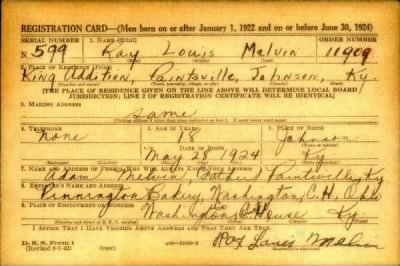 REGISTRATION CARD—(Men born on or after January 1, 1922 and on or before June 30, 1924)
SERIAL NUMBER 1. NAME (Print) ORDER NUMBER
N 599 Ray Louis Melvin 11909
2. PLACE OF RESIDENCE (Print)
King Addition, Paintsville, Johnson, Ky.
[THE PLACE OF RESIDENCE GIVEN ON THE LINE ABOVE WILL DETERMINE LOCAL BOARD
JURISDICTION; LINE 2 OF REGISTRATION CERTIFICATE WILL BE IDENTICAL]
3. MAILING ADDRESS
Same
4. TELEPHONE 5. AGE IN YEARS 6. PLACE OF BIRTH
None 18 Johnson
DATE OF BIRTH
May 28 1924 Ky
7. NAME AND ADDRESS OF PERSON WHO WILL ALWAYS KNOW YOUR ADDRESS
Adam Melvin, Paintsville, Ky
8. EMPLOYER'S NAME AND ADDRESS
Pennington Bakery, Washington, C.H., Ohio
9. PLACE OF EMPLOYMENT OR BUSINESS
Washington, House Ky.
I AFFIRM THAT I HAVE VERIFIED ABOVE ANSWERS AND THAT THEY ARE TRUE.
D. S. S. Form 1
Ray Louis Melvin